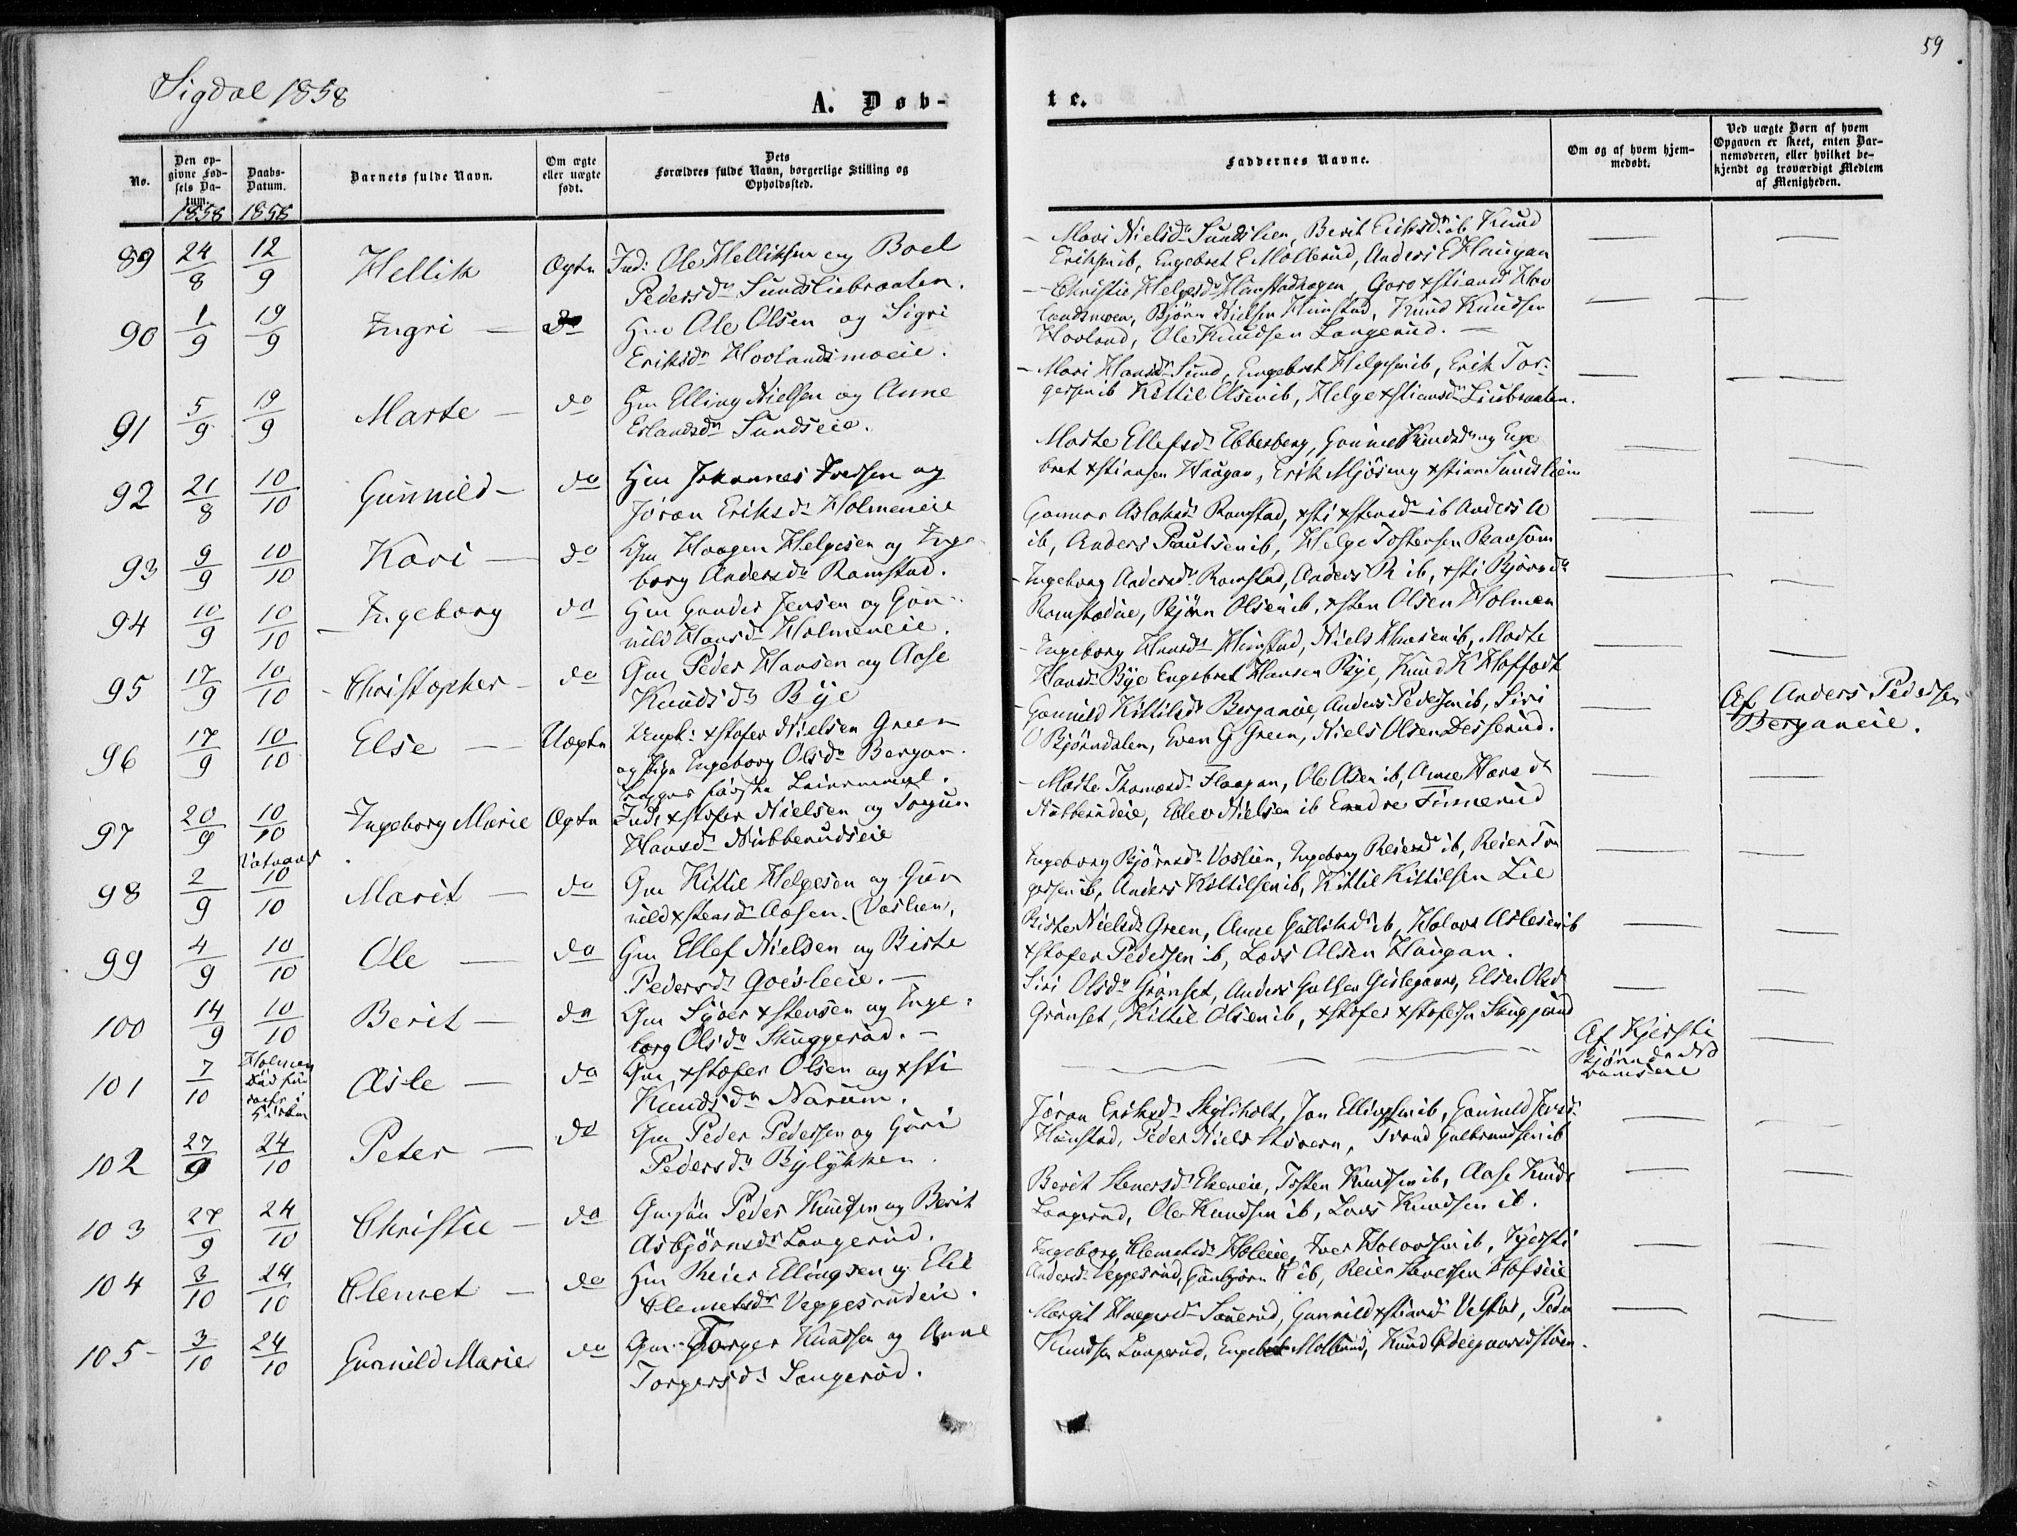 59
Sigdal 1858
A. Døb-
te.
No.
Den op-
givne Fød-
sels Da-
tum.
1858
Daabs-
Datum.
1858
Barnets fulde Navn.
Om ægte
eller uægte
født.
Dets
Forældres fulde Navn, borgerlige Stilling og
Opholdssted.
Faddernes Navne.
Om og af hvem hjem-
medøbt.
Ved uægte Børn af hvem
Opgaven er skeet, enten Bar-
nemoderen, eller hvilket be-
kjendt og troværdigt Medlem
af Menigheden.
89 24/8 12/9 Hellik Ægte Ind: Ole Helliksen og Boel
Pedersdr Sundsliebraaten.
Mari Nielsdr Sundslien, Berit Eriksdr ib Knud
Eriksen ib, Engebret E Mollerud, Anders E Haugan
90 1/9 19/9 Ingri — do Hm Ole Olsen og Sigri
Eriksdr Hovlandsmoeie.
Christie Helgesdr Himstadhagen, Goro xstiansd Hov
landsmoen, Bjørn Nielsen Himstad, Knud Knudsen
Hovland, Ole Knudsen Langerud. —
91 5/9 19/9 Marte — do Hm Elling Nielsen og Anne
Erlandsdr Sundseie.
Mari Hansdr Sund, Engebret Helgesen ib, Erik Tor-
gersen ib Kittil Olsen ib, Helge xstiansdr Liebraaten.
92 21/8 10/10 Gunnild — do Hm Johannes Iversen og
Jøran Eriksdr Holmeneie
Marte Ellefsdr Ebbesberg, Gunnild Knudsdr og Enge
bret xstiansen Haugan, Erik Mjøseng xstian Sundslien
93 9/9 10/10 Kari — do Gm Haagen Helgesen og Inge-
borg Andersdr Ramstad.
Gunnor Aslaksdr Ramstad, xsti xstensdr ib Anders A
ib, Anders Paulsen ib, Helge Tostensen Ransom
94 10/9 10/10 Ingeborg do Hm Gunder Jensen og Gun-
nild Hansdr Holmeneie.
Ingeborg Andersdr Ramstad, Anders R ib, xsti Bjørnsdr
Ramstadeie, Bjørn Olsen ib, xsten Olsen Holmen
95 17/9 10/10 Christopher — do Gm Peder Hansen og Aase
Knudsdr Bye
Ingeborg Hansdr Himstad, Niels Hansen ib, Marte
Hansdr Bye Engebret Hansen Bye, Knud K Hoffart
96 17/9 10/10 Else — Uægte Ungk: xstofer Nielsen Green
og Pige Ingeborg Olsdr Bergan.
Begges første Leiermaal.
Gunnild Kittilsdr Berganeie, Anders Pedersen ib, Siri
O Bjørndalen, Even G Green, Niels Olsen Desserud.
Af Anders Pedersen
Berganeie.
97 20/9 10/10 Ingeborg Marie Ægte Inds xstofer Nielsen og Torgun
Hansdr Nubberudseie
Marte Thomasdr Flaagan, Ole Olsen ib, Anne Hansdr
Nubberudeie, Ellev Nielsen ib Endre Finnerud
98 2/9 10/10 Marit — do Gm Kittil Helgesen og Gun
nild xstensdr Aasen. (Voslien,
Ingeborg Bjørnsdr Voslien, Ingeborg Reiersdr ib, Reier Tor
gersen ib, Anders Kittilsen ib, Kittil Kittilsen Lie
99 4/9 10/10 Ole — do Gm Ellef Nielsen og Birte
Pedersdr —
Birte Nielsdr Green, Anne ib, Halvor Aslesen ib
xstofer Pedersen ib, Lars Olsen Haugan.
100 14/9 10/10 Berit — do Gm Syver xstensen og Inge-
borg Olsdr Skuggerud. —
Siri Olsdr Grønset, Anders Gislegaard, Else Olsd
Grønset, Kittil Olsen ib, xstofer xstofersen Skuggerud
101 7/10 Holmen
Død før
i
Kirken
Asle — do Gm xstofer Olsen og xsti
Knudsdr Narum.
Af Kjersti
Bjørnsdr
102 27/9 24/10 Peter — do Gm Peder Pedersen og Guri
Pedersdr Bylykken.
Jøran Eriksdr Skyliholt, Jon Ellingsen ib, Gunnild Jensdr
Himstad, Peder Niels Støvern, Trond Gulbrandsen ib
103 27/9 24/10 Christie — do Gm søn Peder Knudsen og Berit
Asbjørnsdr Langerud.
Berit Stenersdr Ekeneie, Tosten Knudsen ib, Aase Knuds
Langerud, Ole Knudsen ib, Lars Knudsen ib.
104 3/10 24/10 Clemet — do Hm Reier Ellingsen og Eli
Clemetsdr Veggesrudeie.
Ingeborg Clemetsdr Holeie, Iver Halvorsen ib, Kjersti
Andersdr Veggesrud, Gunbjørn H ib, Reier Hofseie
105 3/10 24/10 Gunnild Marie do Gm Torger Knudsen og Anne
Torgersdr Langerud.
Margit Haagensdr Sønerud, Gunnild xstiansdr Velstad, Peder
Knudsen Langerud, Engebret Mollerud, Knud Ødegaardstuen.